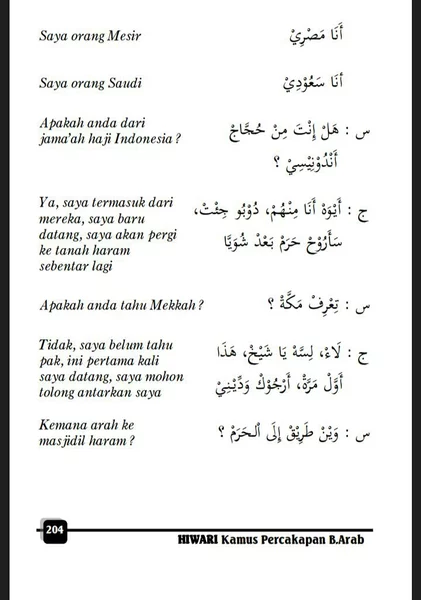 Saya orang Mesir
أَنَا مَصْرِيْ
Saya orang Saudi
أنَا سَعُوْدِيْ
Apakah anda dari
jama'ah haji Indonesia ?
س : هَلْ إِنْتَ مِنْ حُجَّاجْ
أَنْدُوْنِيْسِيْ ؟
Ya, saya termasuk dari
mereka, saya baru
datang, saya akan pergi
ke tanah haram
sebentar lagi
ج : أَيْوَهْ أَنَا مِنْهُمْ، دُوْبُو جِئْتْ،
سَأَرُوْحْ حَرَمْ بَعْدْ شُوَيَّا
Apakah anda tahu Mekkah ?
س : تِعْرِفْ مَكَّةْ ؟
Tidak, saya belum tahu
pak, ini pertama kali
saya datang, saya mohon
tolong antarkan saya
ج : لَاءْ، لِسَّهْ يَا شَيْخْ، هَذَا
أَوَّلْ مَرَّةْ، أَرْجُوْكْ وَدِّيْنِيْ
Kemana arah ke
masjidil haram ?
س : وَيْنْ طَرِيْقْ إِلَى الْحَرَمْ ؟
204
HIWARI Kamus Percakapan B.Arab